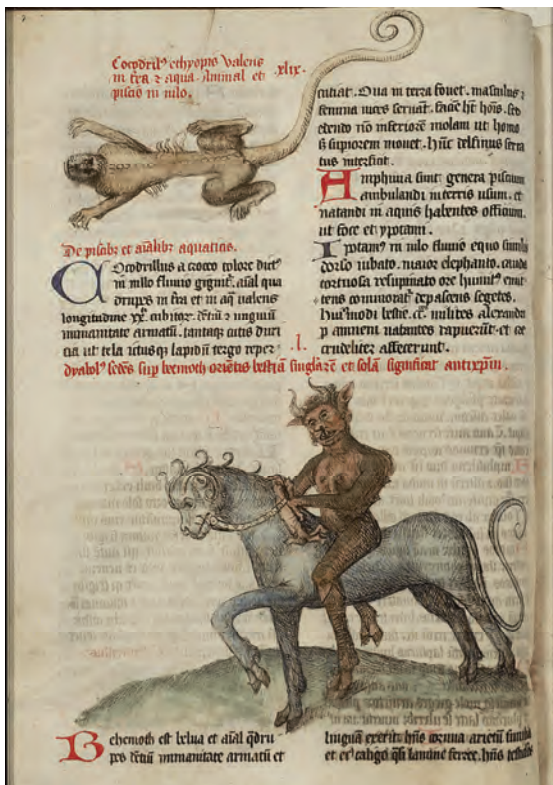 Cocodril' ethyopis valens
in tra & aqua. animal et
piscis in nilo.
.xlix.
De piscibz et aialibz aquaticis.
Cocodrillus a croceo colore dict'
in nillo fluvio gignit. aial qua
drupes in tra et in aq valens
longitudine xx. cubitor. dētiū & unguiū
immanitate armatū. tantaq cutis duri
cia ut tela ictusq lapidū tergo reper
cuciat. Qua in terra fovet. masculus &
femina vices servat.
edendo nō inferiorē molam ut homo
s superiorem movet. hūc delfinus serra
tus interficit.
Amphivia sunt genera pisciū
ambulandi in terris usum. et
natandi in aquis habentes officium.
ut foce et ypotami.
Ipotam' in nilo fluvio equo simil
dorso iubato. maior elephanto. cauda
tortuosa resupinato ore
depascens segetes.
hui'modi bestie. milites alexand
p amnem natantes rapuerūt et
crudelit affecerunt.
.l.
dyabol' sedēs sup beemoth oriētis bestiā singlarē et solā significat antixpm.
Behemoth est belua et aial qdru
pes dētiū immanitate armatū et
linguā exerit. hui' cornua arietū simil
et ei' caligo qsi lamine ferree. hui'